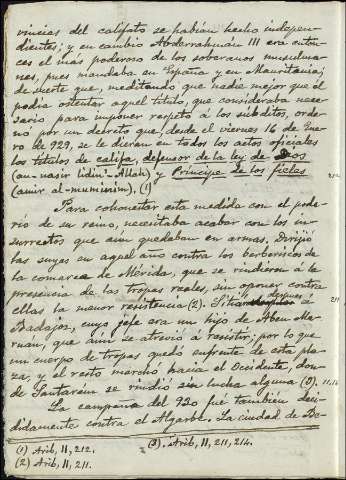 vincias del califato se habían hecho indepen-
dientes; y en cambio Abderrahman III era enton-
ces el más poderoso de los soberanos musulma-
nes, pues mandaba en España y en Mauritania;
de suerte que, meditando que nadie mejor que él
podía ostentar aquel título, que consideraba nece-
sario para imponer respeto á los súbditos, orde-
nó por un decreto que, desde el viernes 16 de Ene-
ro de 929, se le dieran en todos los actos oficiales
los títulos de califa, defensor de la ley de Dios
(an-nasir lidin-Allah) y Príncipe de los fieles
(amir al-muminim). (1)
Para cohonestar esta medida con el pode-
río de su reino, necesitaba acabar con los in-
surrectos que aun quedaban en armas. Dirijió
las suyas en aquel año contra los berberiscos de
la comarca de Mérida, que se rindieron á la
presencia de las tropas reales, sin oponer contra
ellas la menor resistencia (2). Sitiaron después á
Badajoz, cuyo jefe era un hijo de Aben Ma-
ruan, que aún se atrevió á resistir; por lo que
un cuerpo de tropas quedó enfrente de esta pla-
za y el resto marchó hacia el Occidente, don-
de Santarém se rindió sin lucha alguna (3).
La campaña del 920 fué también deci-
didamente contra el Algarbe. La ciudad de Be-
(1) Arib, II, 212.
(2) Arib, II, 211.
(3). Arib, II, 211, 214.